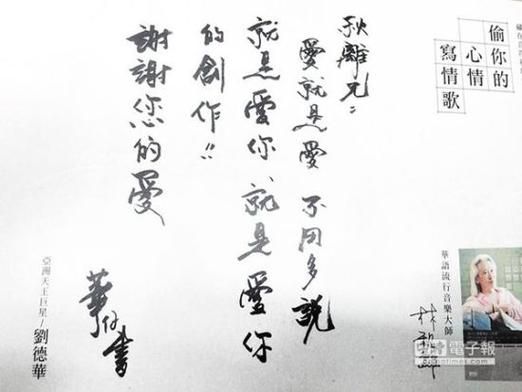 偷你的
心情
寫情歌
華語流行音樂大師
秋離兄：
愛就是愛 不用多說
就是愛你 就是愛你
的創作!!
謝謝您的愛
華仔書
亞洲天王巨星/劉德華
電子報